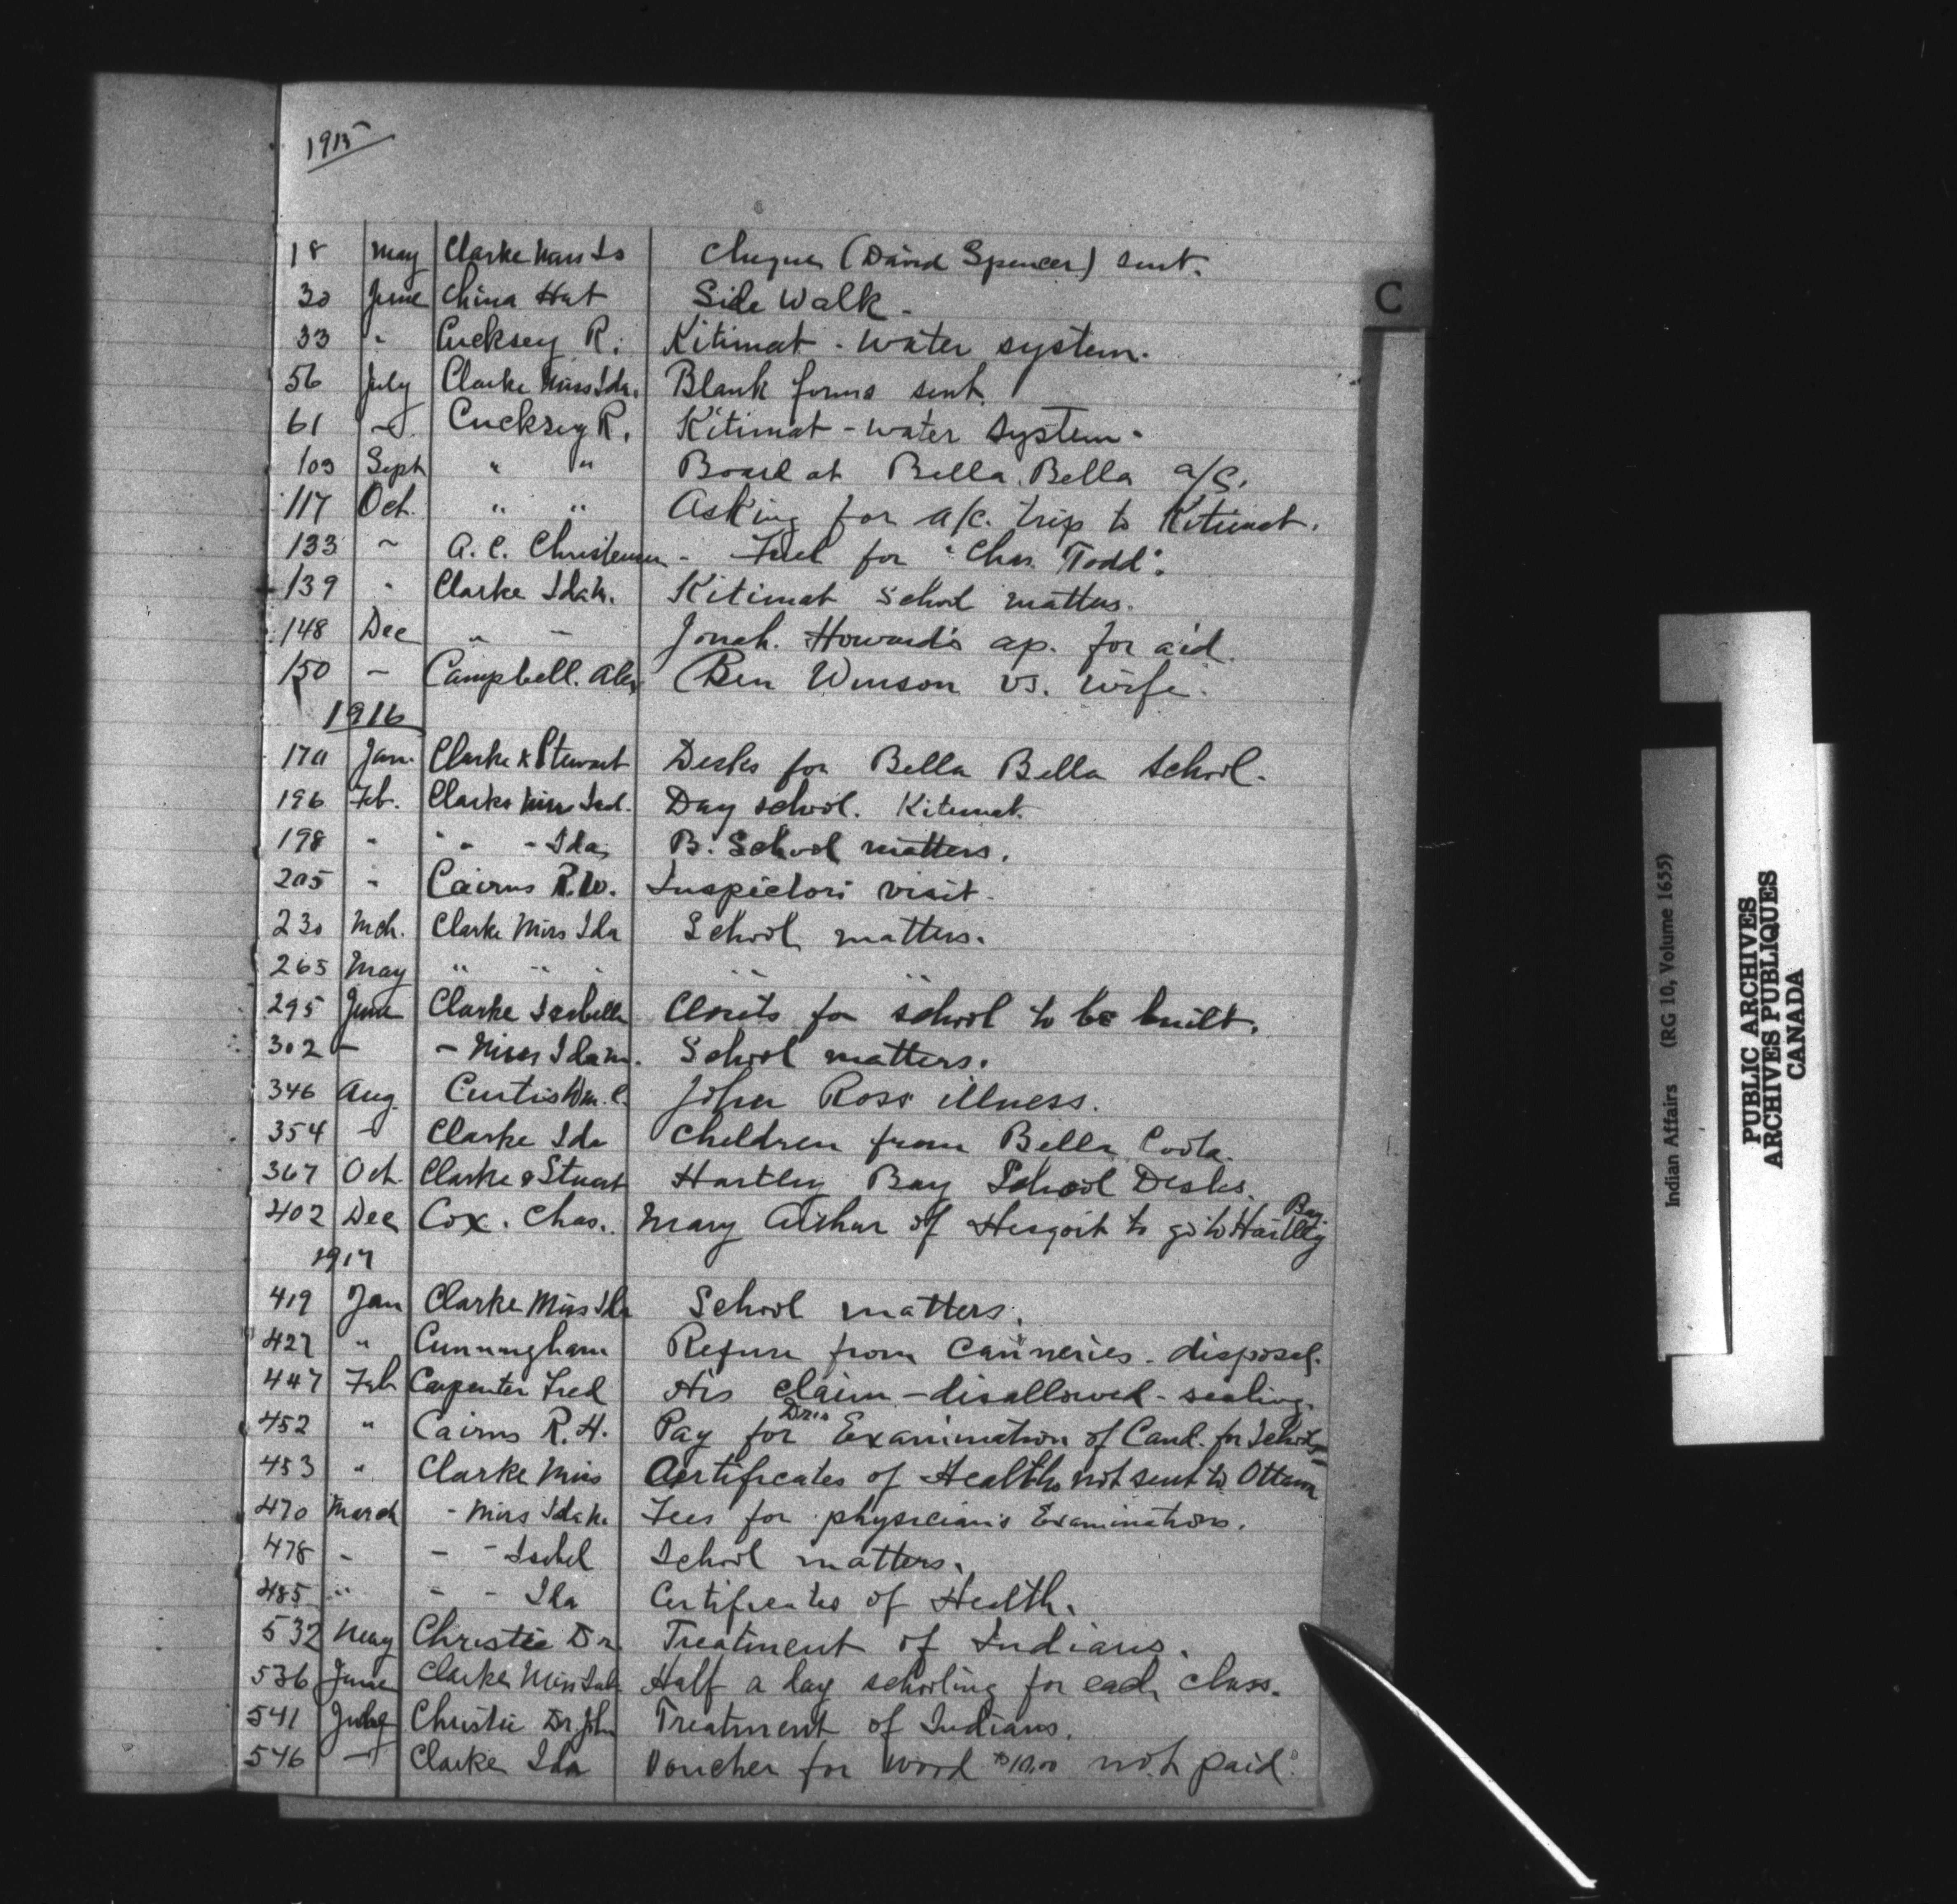 1915
18 May Clarke Miss Is Cheques (David Spencer) sent.
30 June China Hat Side Walk.
33 " Cucksey R. Kitimat - water system.
56 July Clarke Miss Ida. Blank forms sent.
61 " Cucksey R. Kitimat - water system.
103 Sept " " Board at Bella Bella a/c.
117 Oct. " " Asking for a/c. trip to Kitimat.
133 " A. C. Christensen - Fuel for "Chas. Todd".
139 " Clarke Ida M. Kitimat School matters.
148 Dec " " Jonah. Howard's ap. for aid.
150 " Campbell. Alex Ben Winson vs. wife.
1916
170 Jan. Clarke & Stewart Desks for Bella Bella School.
196 Feb. Clarke Miss Isa. Day school. Kitimat.
198 " " " Ida B. School matters.
205 " Cairns R.W. Inspectors visit.
230 Mch. Clarke Miss Ida School matters.
265 May " " " "
295 June Clarke Isabella Closets for school to be built.
302 " - Miss Ida M. School matters.
346 Aug. Curtis Wm. C. John Ross illness.
354 " Clarke Ida Children from Bella Coola.
367 Oct. Clarke & Stuart Hartley Bay School Desks.
402 Dec Cox. Chas. Mary Arthur of Hesquit to go to Hartley Bay.
1917
419 Jan Clarke Miss Ida School matters.
427 " Cunningham Refuse from Canneries - disposal.
447 Feb Carpenter Fred His claim - disallowed - sealing.
452 " Cairns R. H. Pay for Drs. Examination of Cand. for Schools
453 " Clarke Miss Certificates of Health not sent to Ottawa
470 March - Miss Ida M. Fees for physician's Examinations.
478 " - - Isabel School matters.
485 " - - Ida Certificates of Health.
532 May Christie Dr. Treatment of Indians.
536 June Clarke Miss Half a day schooling for each class.
541 July Christie Dr. John Treatment of Indians.
546 " Clarke Ida Voucher for wood $10.00 not paid.
C
Indian Affairs (RG 10, Volume 1655)
PUBLIC ARCHIVES
ARCHIVES PUBLIQUES
CANADA